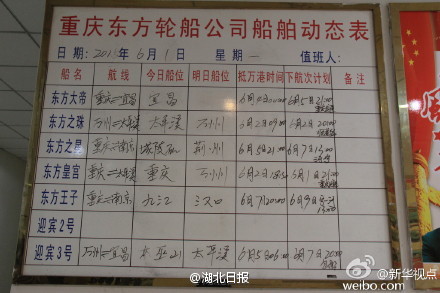 重庆东方轮船公司船舶动态表
日期：2015年6月1日 星期一 值班人：
船名 航线 今日船位 明日船位 抵万港时间 下航次计划 备注
东方大帝 重庆=宜昌 宜昌 6月
东方之珠 万州= 太平溪 万州 6月2日09时 6月2日20:00
东方之星 重庆=南京 城陵矶 荆州 6月5日21时 6月7日
东方皇宫 重庆= 重庆 万州 6月2日 5月1日21:00
东方王子 重庆=南京 九江 汉口 6月7日20:00 6月9日
迎宾2号
迎宾3号 万州=宜昌 巫山 太平溪 6月5日06:00 6月7日20:00
@湖北日报
@新华视点
weibo.com